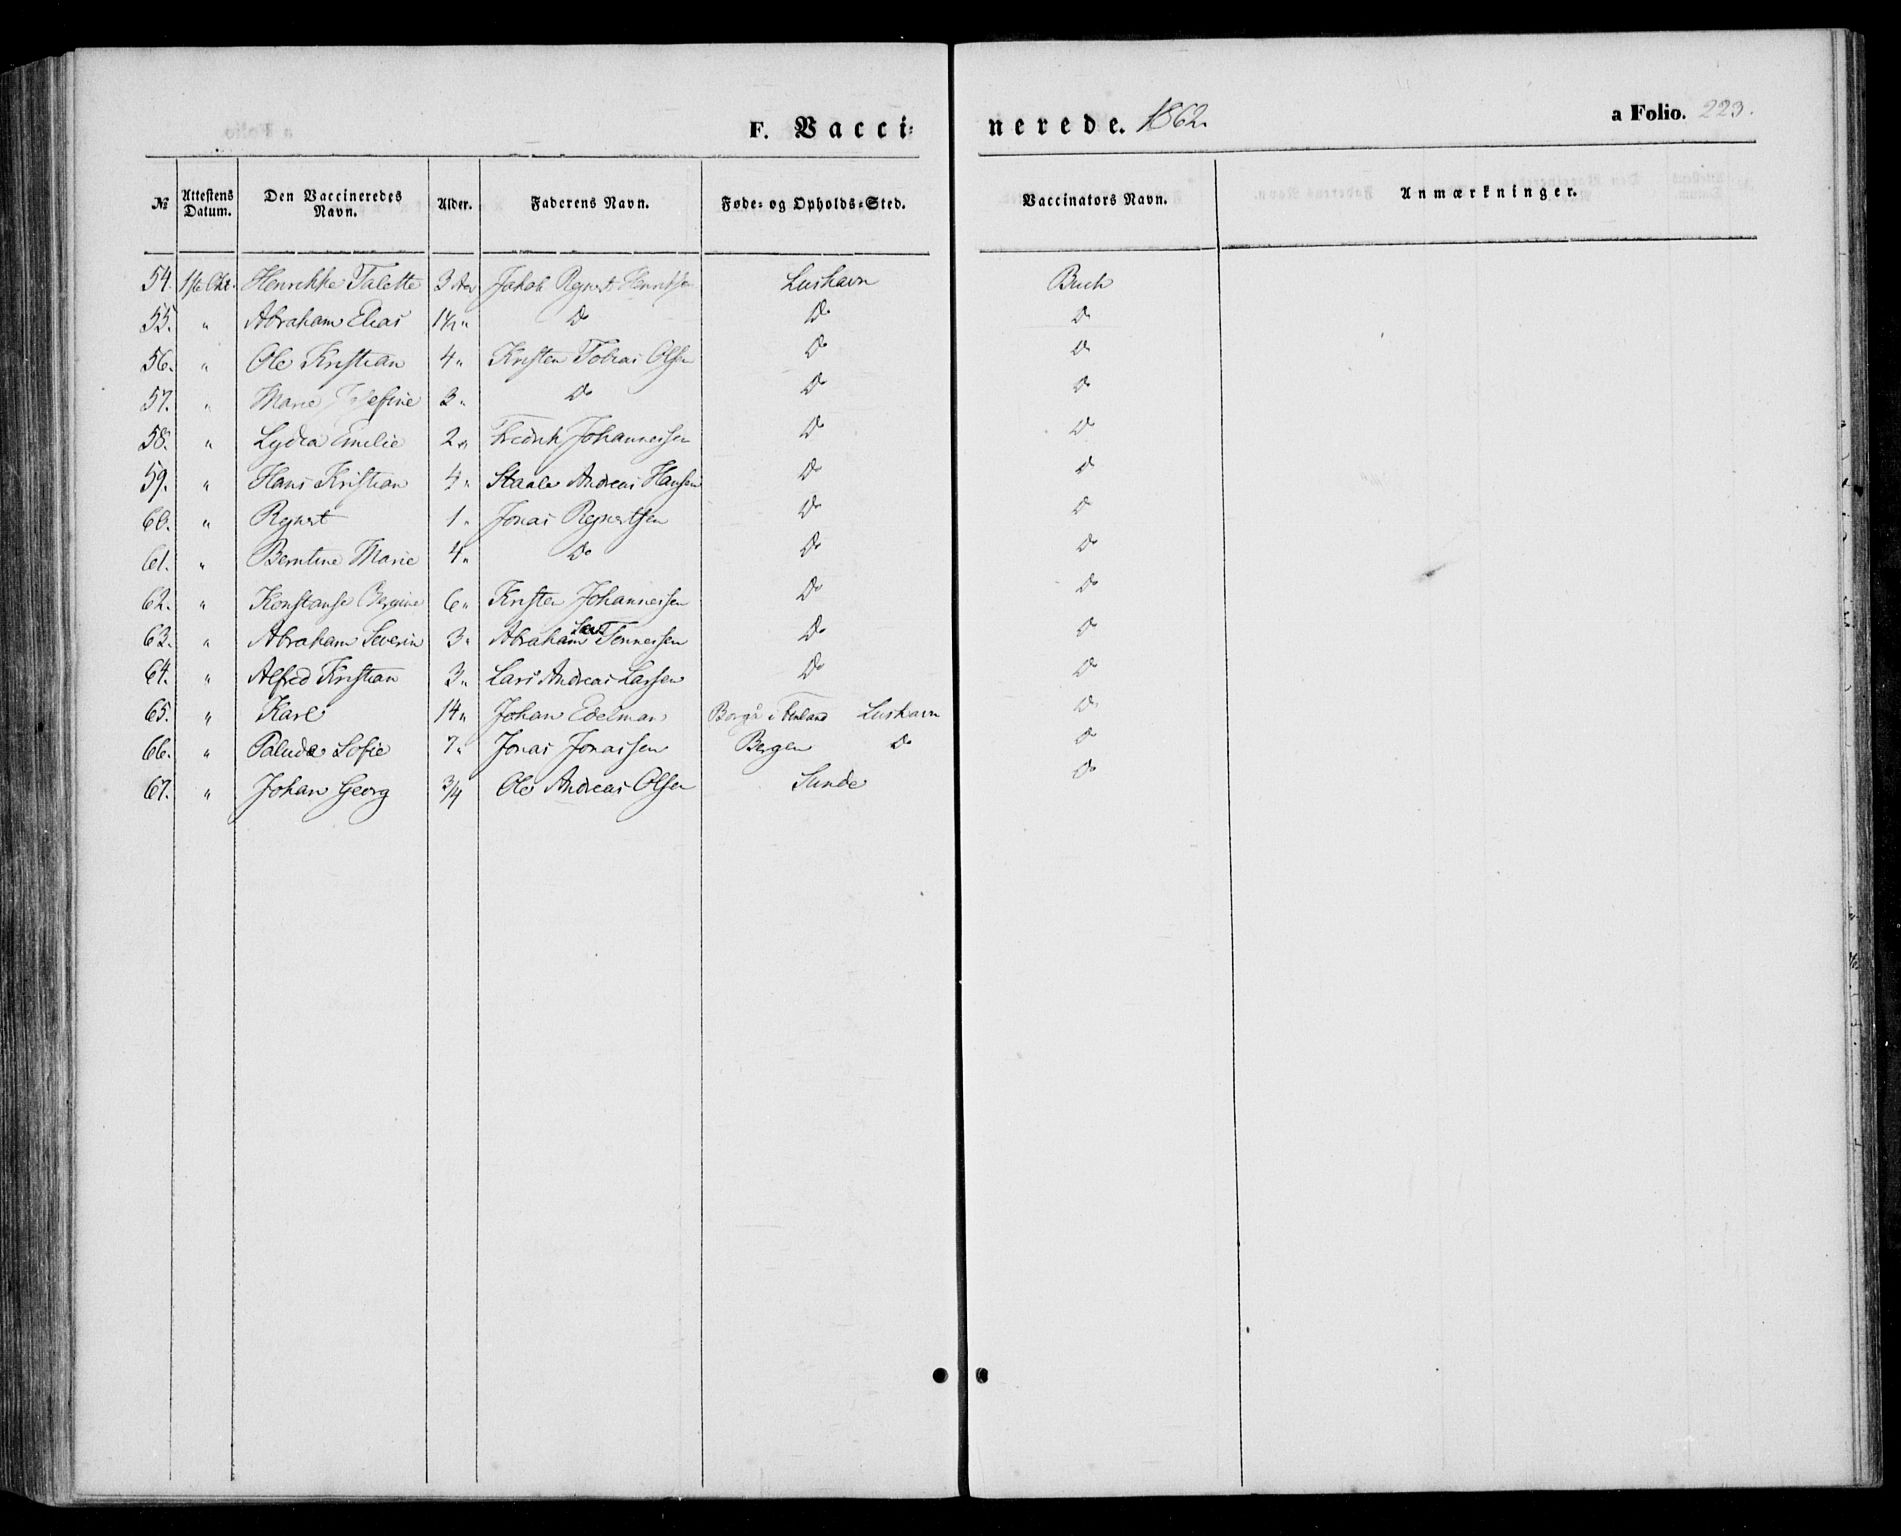 F. Vacci- nerede. 1862. a Folio. 223.
№ Attestens Datum. Den Vaccineredes Navn. Alder. Faderens Navn. Føde- og Opholds-Sted. Vaccinators Navn. Anmærkninger.
54. Henrikke Talette 3 Aar Jakob Regnert Henriksen Lushavn Buch
55. " Abraham Elias 1½ " Do Do Do
56. " Ole Kristian 4 " Kristen Tobias Olsen Do Do
57. " Marie Josefine 3 " Do Do Do
58. " Lydia Emilie 2 " Fredrik Johannessen Do Do
59. " Hans Kristian 4 " Staale Andreas Hansen Do Do
60. " Regnert 1 " Jonas Regnertsen Do Do
61. " Berntine Marie 4 " Do Do Do
62. " Konstanse Bergine 6 " Kristen Johannessen Do Do
63. " Abraham Severin 3 " Abraham Tønnessen Do Do
64. " Alfred Kristian 3 " Lars Andreas Larsen Do Do
65. " Karl 14 " Johan Edelman Borgå i Finland Lushavn Do
66. " Sofie 7 " Jonas Jonassen Bergen Do Do
67. " Johan Georg 3/4 Ole Andreas Olsen Sunde Do